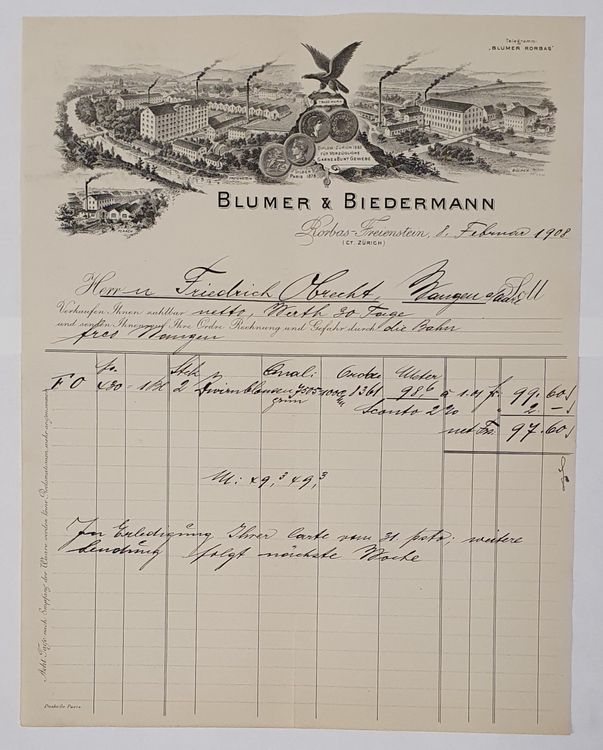 Telegramm:
"BLUMER RORBAS"
DIPLOM ZÜRICH 1883
FÜR VORZÜGLICHE
GARNE & BUNTGEWEBE
SILBER
PARIS 1878
FREIENSTEIN
BLUMER & BIEDERMANN
Rorbas-Freienstein, 8. Februar 1908
(CT. ZÜRICH)
Herrn Friedrich Obrecht, Wangen a/Aare Soll
Verkaufen Ihnen zahlbar netto, Werth 30 Tage
und senden Ihnen auf Ihre Ordre Rechnung und Gefahr durch die Bahn
frco Wangen
No. Stck Qual: Ordre Meter
F O 2 1361 98,6 à 1.01 fr. 99.60
grün Sconto 2% " 2 –
net Frs. 97.60
M: 49,3 49,3
In Erledigung Ihrer Carte vom 31 psto; weitere
Sendung folgt nächste Woche
Acht Tage nach Empfang der Waare werden keine Reclamationen mehr angenommen